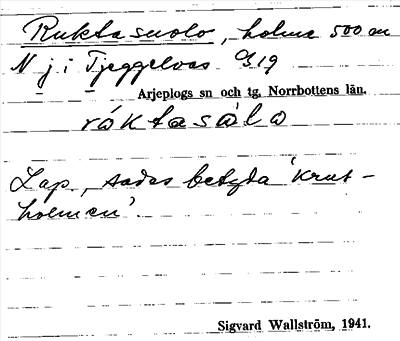 Ruktasuolo, holme 500 m
N j i Tjeggelvas G 19
Arjeplogs sn och tg. Norrbottens län.
ráktasåɩ̀lo
Lap., sades betyda 'Krut-
holmen'.
Sigvard Wallström, 1941.